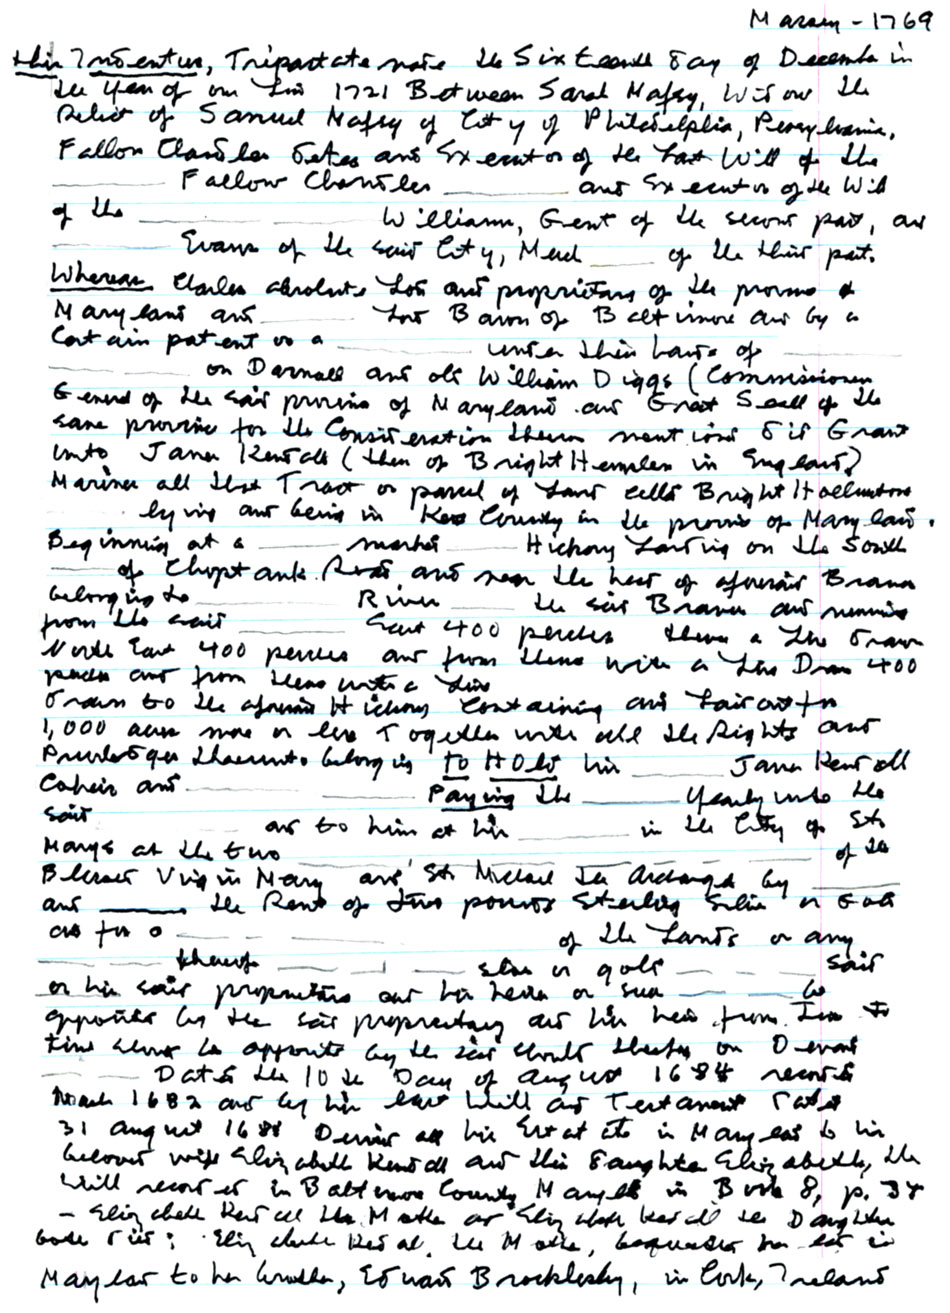 Massey - 1769
this Indenture, Tripartate made the Sixteenth day of December in
the year of our Lord 1721 Between Sarah Massey, Widow the
Relict of Samuel Massey of City of Philadelphia, Pennsylvania,
Fallon Chandler deced and Executor of the Last Will of the
____ Fallow Chandler ____ and Executor of the Will
of the ____ ____ William, Gent of the second part, and
____ Evans of the said City, Merch ____ of the third part.
Whereas Charles absolute Lord and proprietary of the province of
Maryland and ____ Lord Baron of Baltimore did by a
Certain patent ____ under their hands of ____
____ on Darnall and William Diggs (Commissioner
General of the said province of Maryland and Great Seal of the
same province for the Consideration therein mentioned did Grant
unto James Kendall (then of Bright Hemplen in England)
Mariner all that Tract or parcel of Land called Bright
lying and being in Kent County in the province of Maryland.
Beginning at a ____ marked ____ Hickory standing on the South
____ of Choptank Road and near the head of aforesaid Branch
belonging to ____ River ____ the said Branch and running
from the said ____ East 400 perches then a Line drawn
North East 400 perches and from thence with a Line Drawn 400
perches and from thence with a Line
drawn to the aforesaid Hickory Containing and Laid out for
1,000 acres more or less Together with all the Rights and
Priviledges thereunto belonging to HOLD him ____ James Kendall
and ____ Paying the ____ yearly unto the
said ____ and to him at his ____ in the City of St
Marys at the two ____ of the
Blessed Virgin Mary and St. Michael the Archangel by ____
and ____ the Rent of two pounds Sterling Silver or Gold
and for a ____ of the Lands or any
____ thereof ____ silver or gold ____ said
or his said proprietors and his heirs or such ____ be
appointed by the said proprietary and his heirs from Time to
time appointed by the said
____ Dated the 10th Day of August 1684 recorded
March 1682 and by his last Will and Testament dated
31 August 1688 Devised all his Estate in Maryland to his
beloved wife Elizabeth Kendall and this daughter Elizabeth, the
Will recorded in Baltimore County Maryland in Book 8, p. 38
- Elizabeth Kendall the Mother and Elizabeth Kendall the Daughter
both died; Elizabeth Kendall, the Mother, bequeathed her est in
Maryland to her brother, Edward Brocklesby, in Cork, Ireland